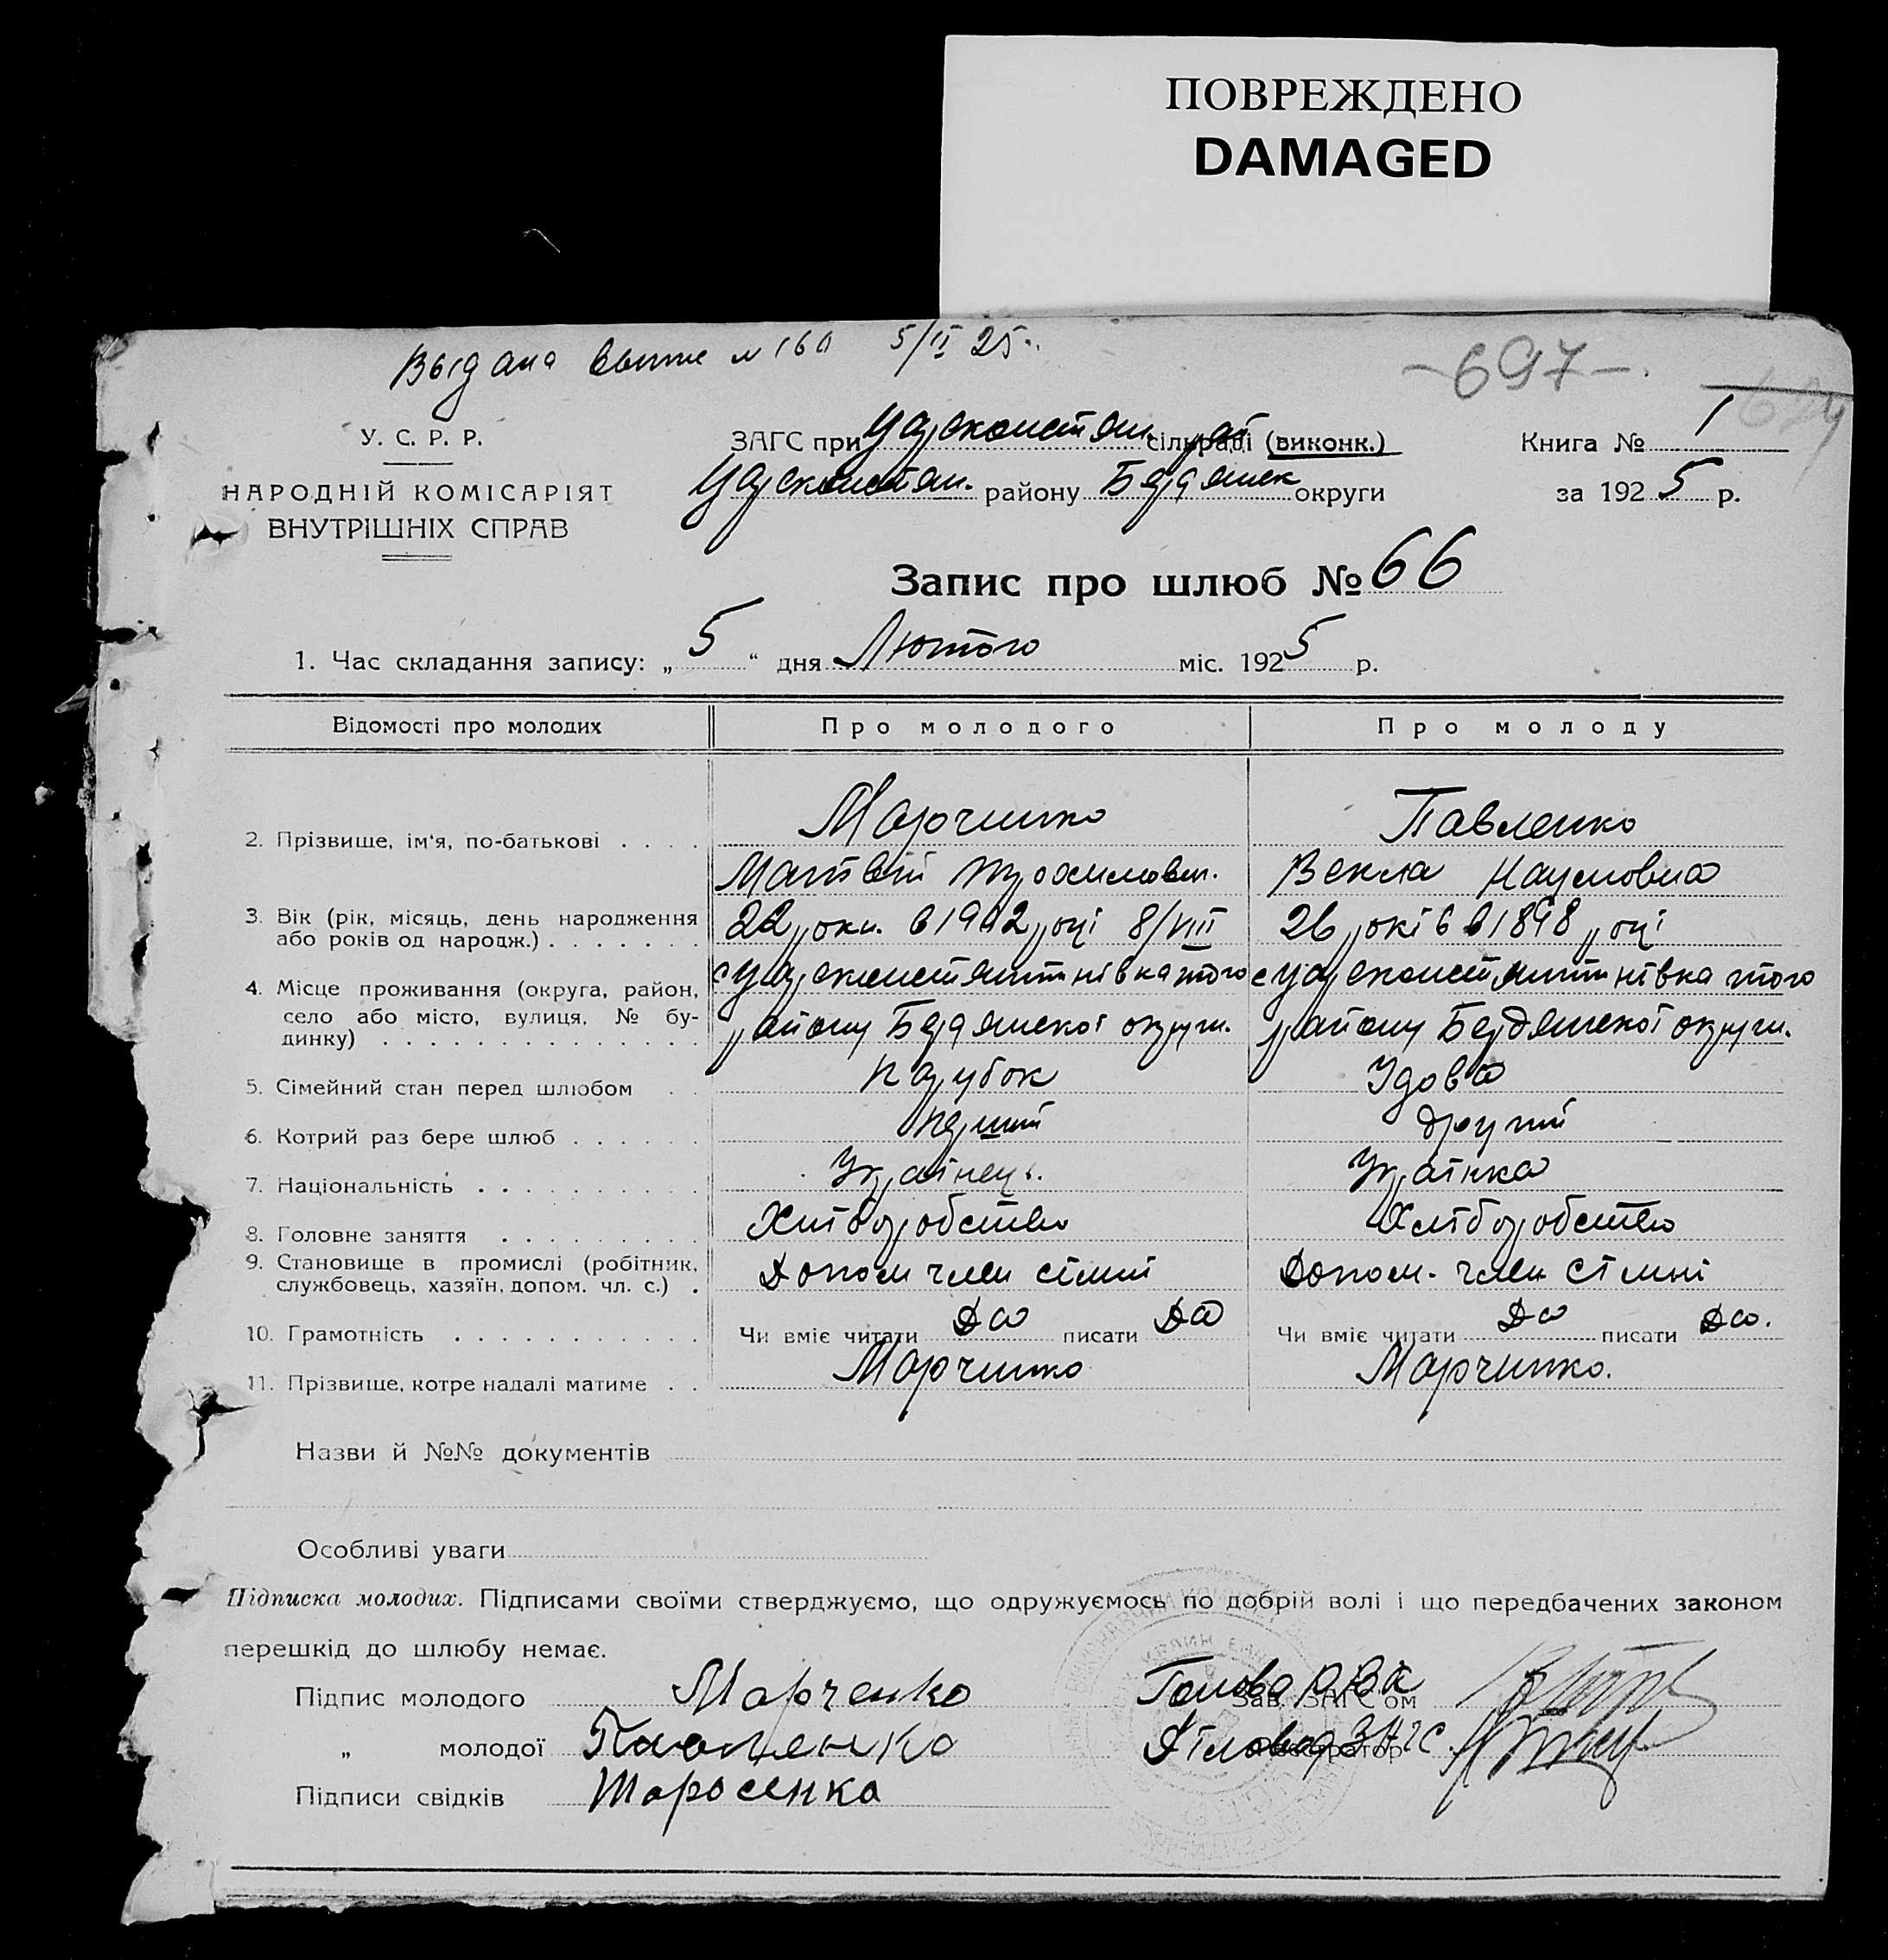 ПОВРЕЖДЕНО
DAMAGED
Выдана 5/II 25
-697-.
У. С. Р. Р.
НАРОДНІЙ КОМІСАРІЯТ
ВНУТРІШНІХ СПРАВ
ЗАГС при Царсконстян. сільраді (виконк.)
Царсконстян. району Бердянськ округи
Книга № 1
за 1925 р.
Запис про шлюб № 66
1. Час складання запису: „5“ дня Лютого міс. 1925 р.
Відомості про молодих Про молодого Про молоду
2. Прізвище, ім'я, по-батькові Марченко Павленко
Матвій Трохимович. Векла Наумовна
3. Вік (рік, місяць, день народження або років од народж.) 22 роки. в 1902 році 8/VIII 26 років в 1898 році
4. Місце проживання (округа, район, село або місто, вулиця, № будинку) с Царсконстянтинівка того с Царсконстянтинівка того
району Бердянської округи. району Бердянської округи.
5. Сімейний стан перед шлюбом Парубок Удова
6. Котрий раз бере шлюб перший другий
7. Національність Українець. Українка
8. Головне заняття Хліборобство Хліборобство
9. Становище в промислі (робітник, службовець, хазяїн, допом. чл. с.) Допом член сімні Допом. член сімні
10. Грамотність Чи вміє читати Да писати Да Чи вміє читати Да писати Да.
11. Прізвище, котре надалі матиме Марченко Марченко.
Назви й №№ документів
Особливі уваги
Підписка молодих. Підписами своїми стверджуємо, що одружуємось по добрій волі і що передбачених законом
перешкід до шлюбу немає.
Підпис молодого Марченко Голова РВК Зав. ЗАГС'ом
„ молодої Павленко Діловод ЗАГС. Реєстратор
Підписи свідків Тарасенко